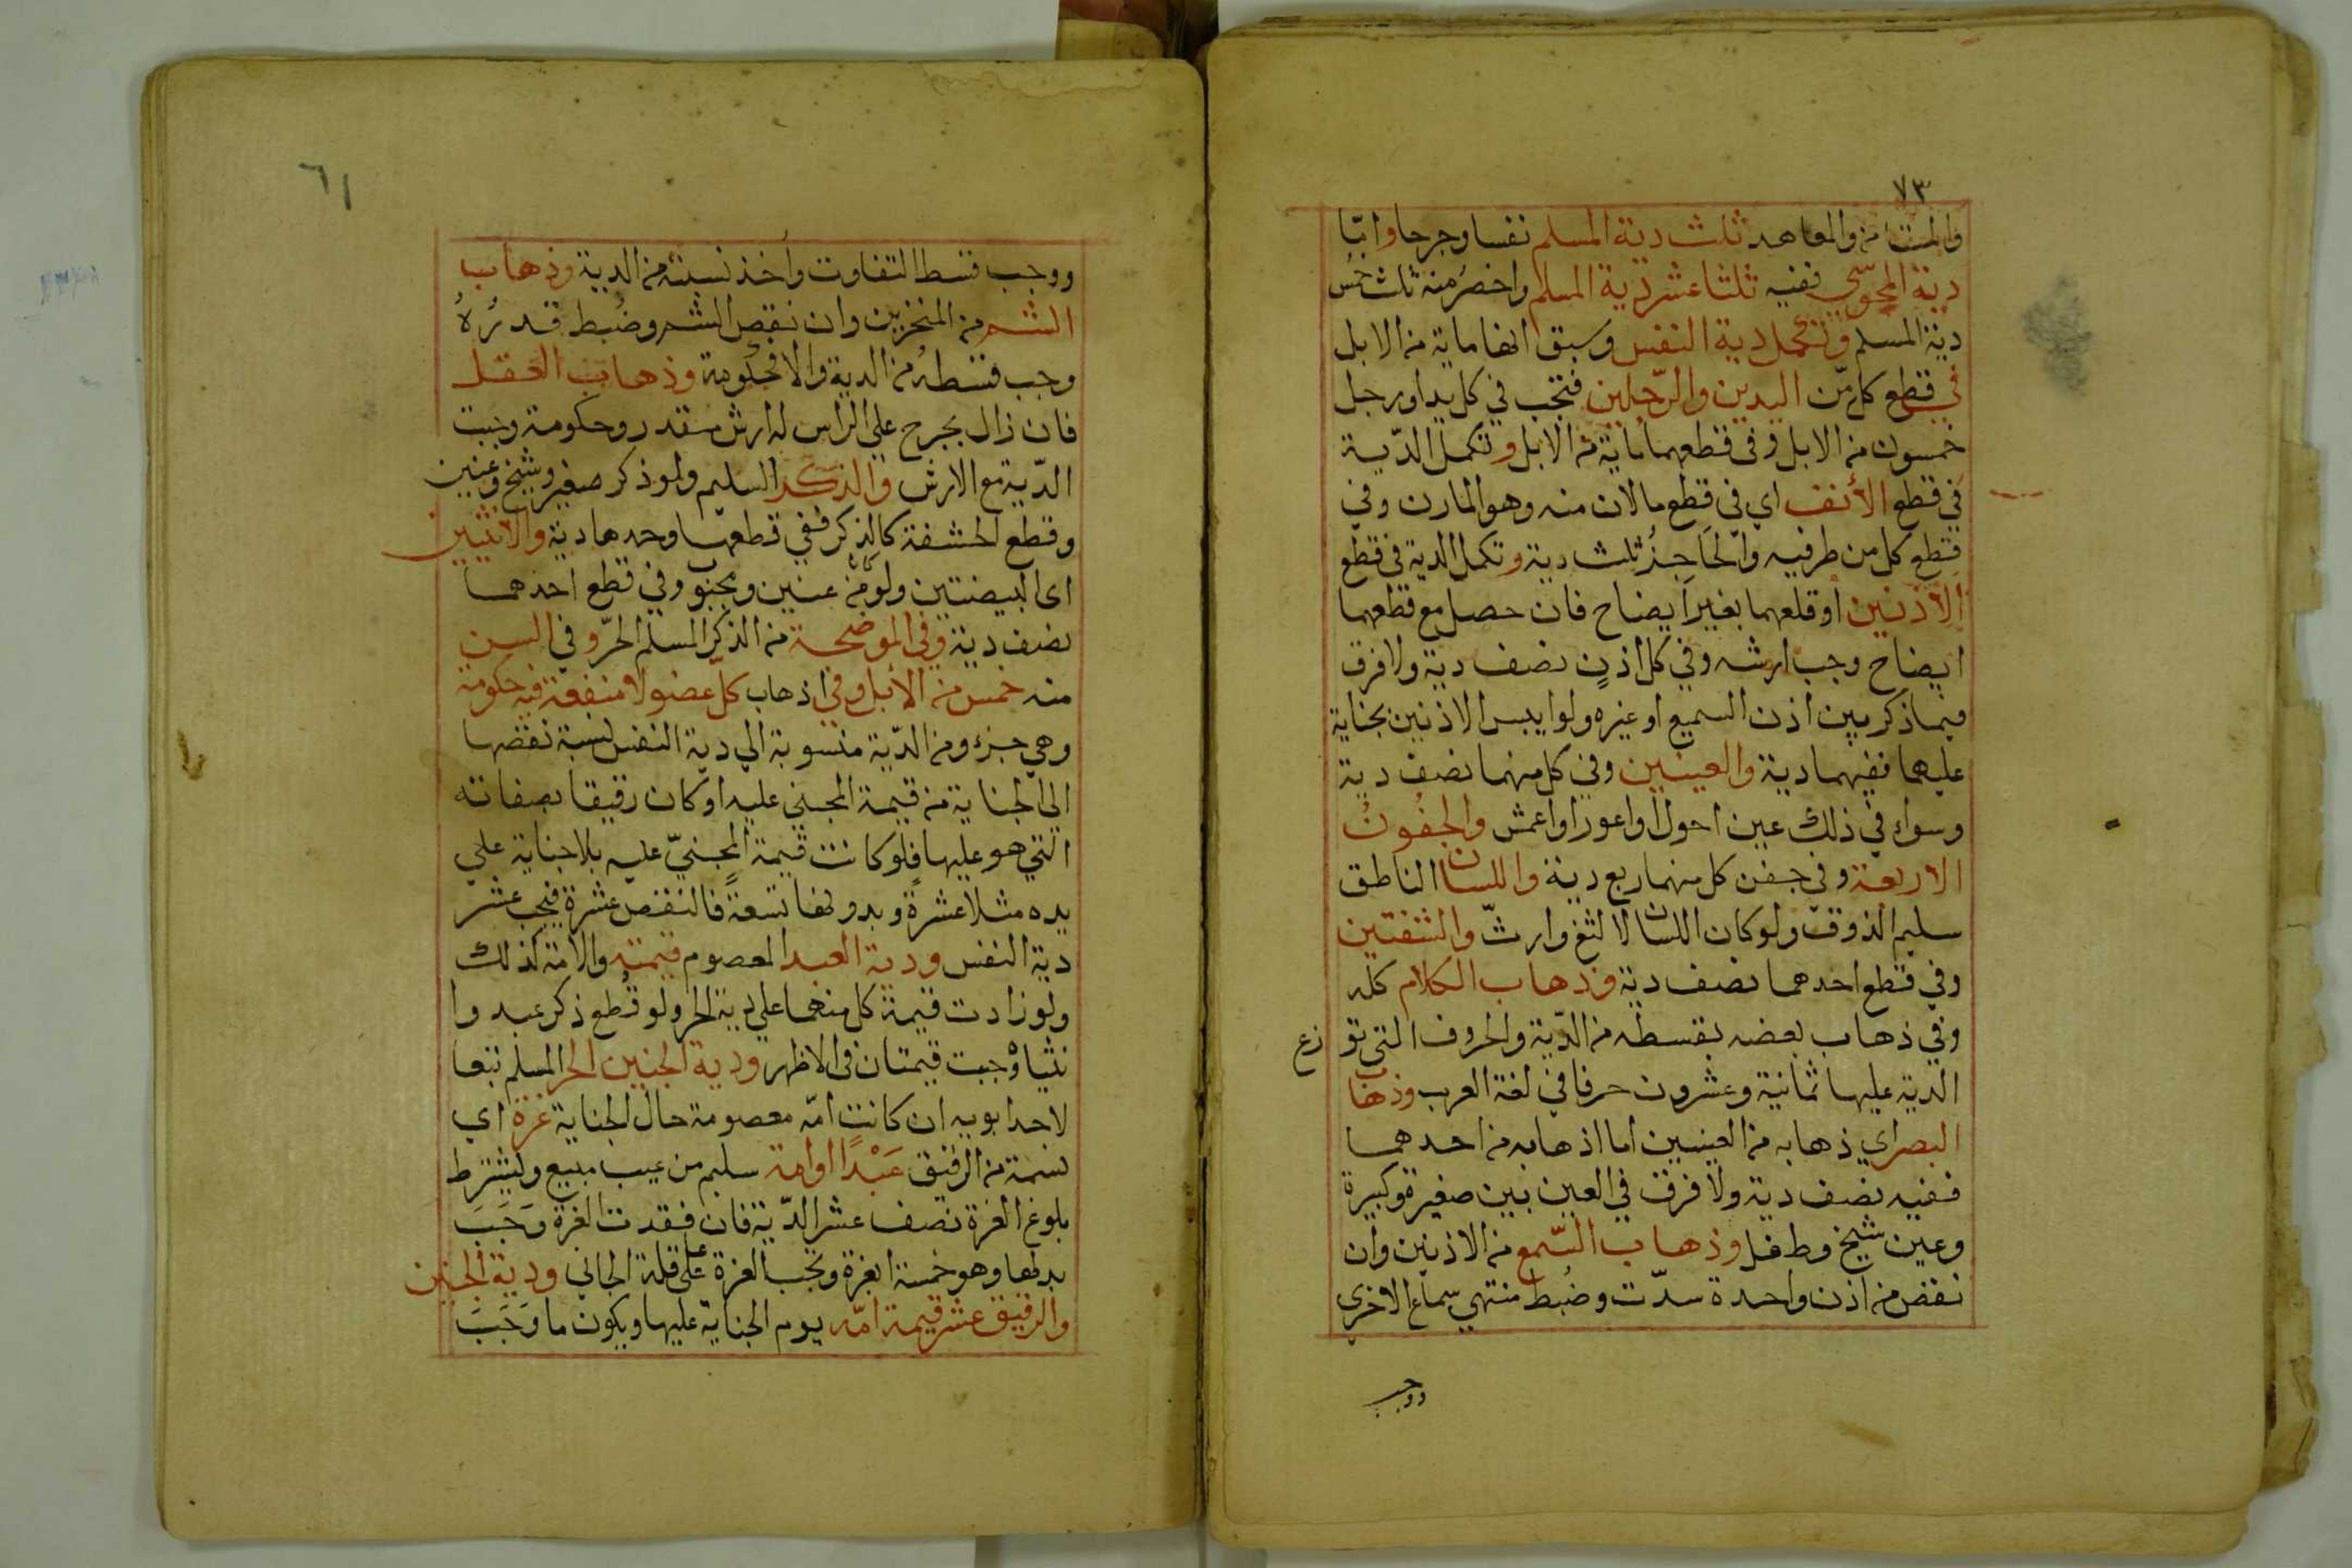 ٧٣
والمستامن والمعاهد ثلث دية المسلم نفسا وجرحا واما
دية المجوسي ففيه ثلثا عشر دية المسلم واخصر منه ثلث خمس
دية المسلم وتكمل دية النفس وسبق انها ماية من الابل
في قطع كل من اليدين والرجلين فتجب في كل يد او رجل
خمسون من الابل وفي قطعهما ماية من الابل وتكمل الدّية
في قطع الأنف اي في قطع مالان منه وهو المارن وفي
قطع كل من طرفيه والحاجز ثلث دية وتكمل الدية في قطع
الأذنين او قلعهما بغير ايضاح فان حصل مع قطعهما
ايضاح وجب ارشه وفي كل اذنٍ نصف دية ولا فرق
فيما ذكر بين اذن السميع او غيره ولو ايبس الاذنين بجناية
عليهما ففيهما دية والعينين وفي كل منهما نصف دية
وسواء في ذلك عين احول او اعور او اعمش والجفون
الاربعة وفي جفن كل منهما ربع دية واللسان الناطق
سليم الذوق ولو كان اللسان لالثغ وارتّ والشفتين
وفي قطع احدهما نصف دية وذهاب الكلام كله
وفي ذهاب بعضه بقسطه من الدّية والحروف التي تو زع
الدية عليها ثمانية وعشرون حرفا في لغة العرب وذهاب
البصر اي ذهابه من العينين اما اذهابه من احدهما
ففيه نصف دية ولا فرق في العين بين صغيرة وكبيرة
وعين شيخ وطفل وذهاب السّمع من الاذنين وان
نقص من اذن واحدة سدّت وضُبط منتهي سماع الاخري
ووجب
٦١
ووجب قسط التفاوت واخذ نسبته من الدية وذهاب
الشم من المنخرين وان نقص الشم وضُبط قدرُهُ
وجب قسطه من الدية والا فحكومة وذهاب العقل
فان زال بجرح علي الراس له ارش مقدر وحكومة وجبت
الدّية مع الارش والذكر السليم ولو ذكر صغير وشيخ وعنين
وقطع الحشفة كالذكر ففي قطعها وحدها دية والانثيين
اي البيضتين ولو من عنين ومجبوب وفي قطع احدهما
نصف دية وفي الموضحة من الذكر المسلم الحرّ وفي السن
منه خمس من الأبل وفي اذهاب كلّ عضو لا منفعة فيه حكومة
وهي جزء من الدّية منسوبة الي دية النفس نسبة نقصها
الي الجناية من قيمة المجني عليه او كان رقيقا بصفاته
التي هو عليها فلو كانت قيمة المجنيّ عليه بلا جناية علي
يده مثلا عشرةً وبدونها تسعةً فالنقص عشرة فيجب عشر
دية النفس ودية العبد المعصوم قيمته والامة كذلك
ولو زادت قيمة كل منهما علي دية الحر ولو قُطع ذكر عبد وا
نثياه وجبت قيمتان في الاظهر ودية الجنين الحر المسلم تبعا
لاحد ابويه ان كانت امّه معصومة حال الجناية غرة اي
نسمة من الرقيق عَبْدًا او امة سليم من عيب مبيع وليشترط
بلوغ الغرة نصف عشر الدّية فان فقدت الغرة وَجَبَ
بدلها وهو خمسة ابعرة وتجب الغرة علي قلة الجاني ودية الجنين
والرقيق عشر قيمة امّه يوم الجناية عليها ويكون ما وَجَبَ